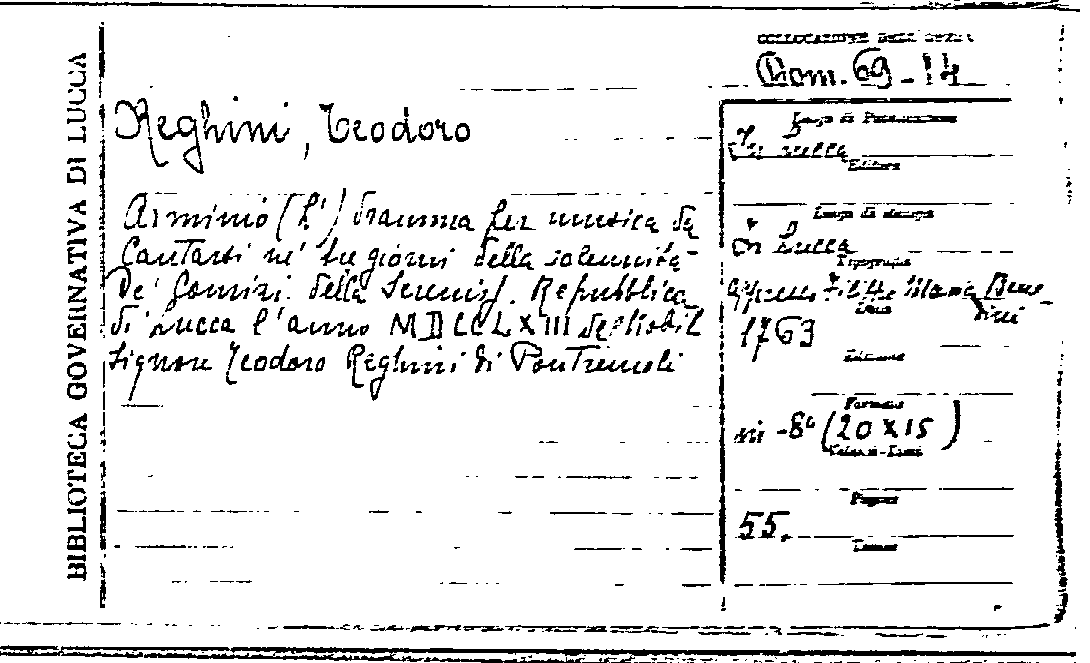 BIBLIOTECA GOVERNATIVA DI LUCCA
COLLOCAZIONE DELL'OPERA
Mom. 69-14
Reghini, Teodoro
Arminio (L') dramma per musica da
Cantarsi ne' tre giorni della solennità
De' Comizi della Sereniss. Repubblica
di Lucca l'anno MDCCLXIII del Nobil
Signore Teodoro Reghini di Pontremoli
Luogo di Pubblicazione
In Lucca
Editore
Luogo di stampa
In Lucca
Tipografia
appresso Filippo Maria Bene-
dini
Data
1763
Edizione
Formato
in-8° (20 x 15)
Volumi-Tomi
Pagine
55.